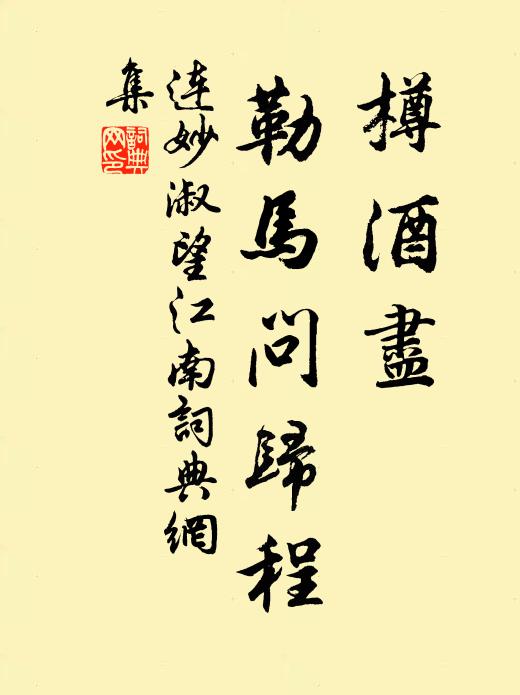 樽酒盡
勒馬問歸程
連妙淑望江南詞典網
集
詞典
网印